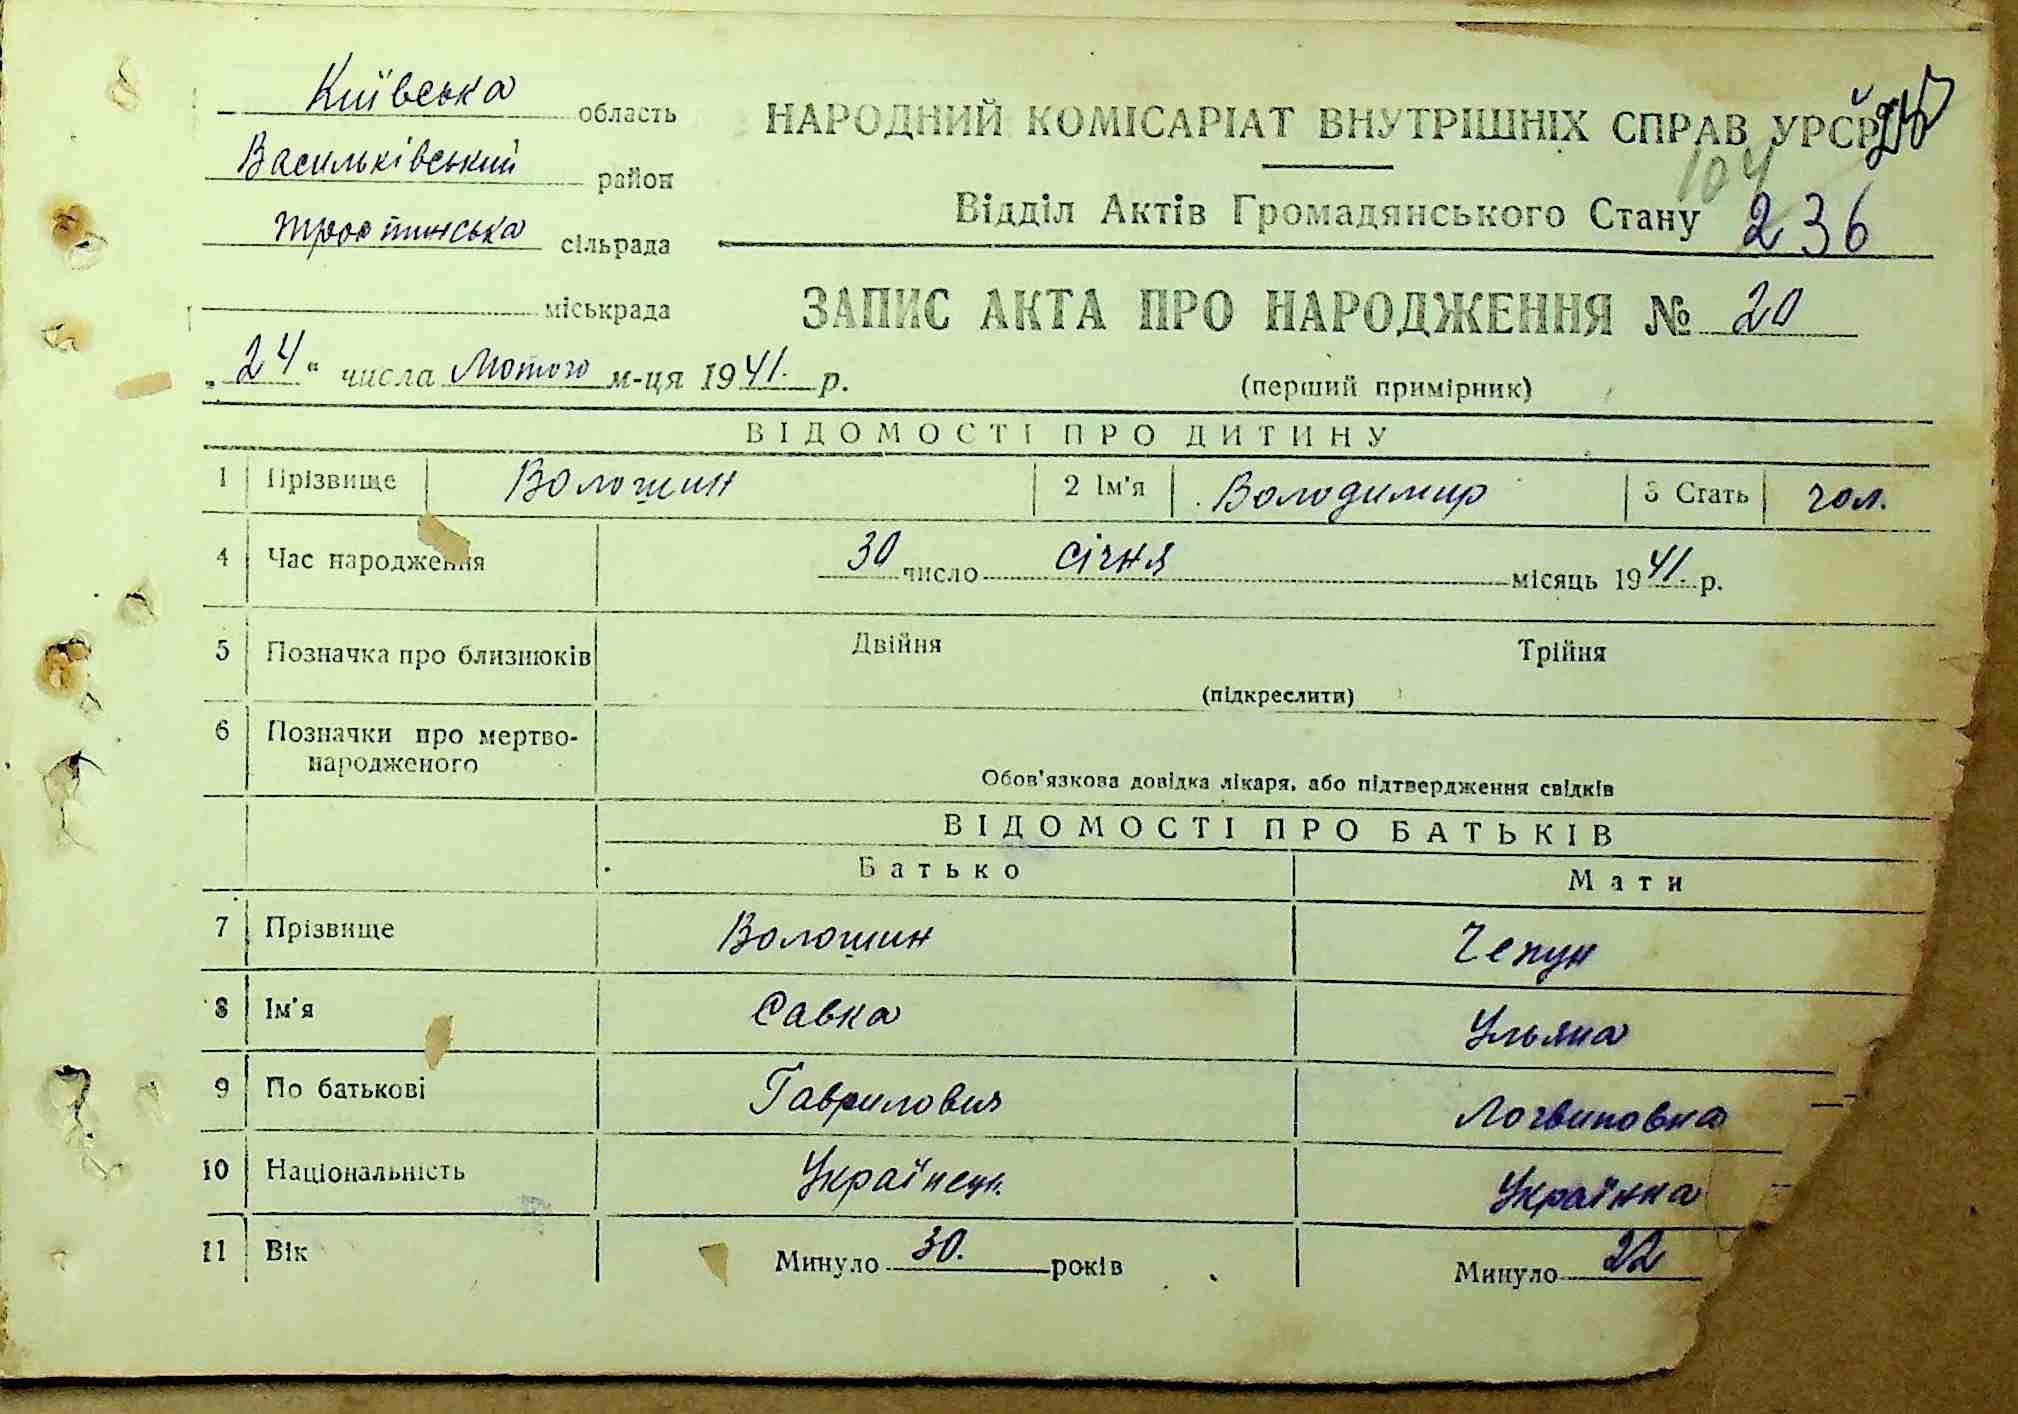 Київська область
Васильківський район
Тростинська сільрада
міськрада
НАРОДНИЙ КОМІСАРІАТ ВНУТРІШНІХ СПРАВ УРСР
104
Відділ Актів Громадянського Стану 236
ЗАПИС АКТА ПРО НАРОДЖЕННЯ № 20
„24“ числа Лютого м-ця 1941. р.
(перший примірник)
ВІДОМОСТІ ПРО ДИТИНУ
1 Прізвище Волошин 2 Ім'я Володимир 3 Стать чол.
4 Час народження 30 число січня місяць 1941. р.
5 Позначка про близнюків Двійня Трійня
(підкреслити)
6 Позначки про мертво-
народженого
Обов'язкова довідка лікаря, або підтвердження свідків
ВІДОМОСТІ ПРО БАТЬКІВ
Батько Мати
7 Прізвище Волошин Чепун
8 Ім'я Савка Ульяна
9 По батькові Гаврилович Логвиновна
10 Національність Українець. Українка
11 Вік Минуло 30. років Минуло 22